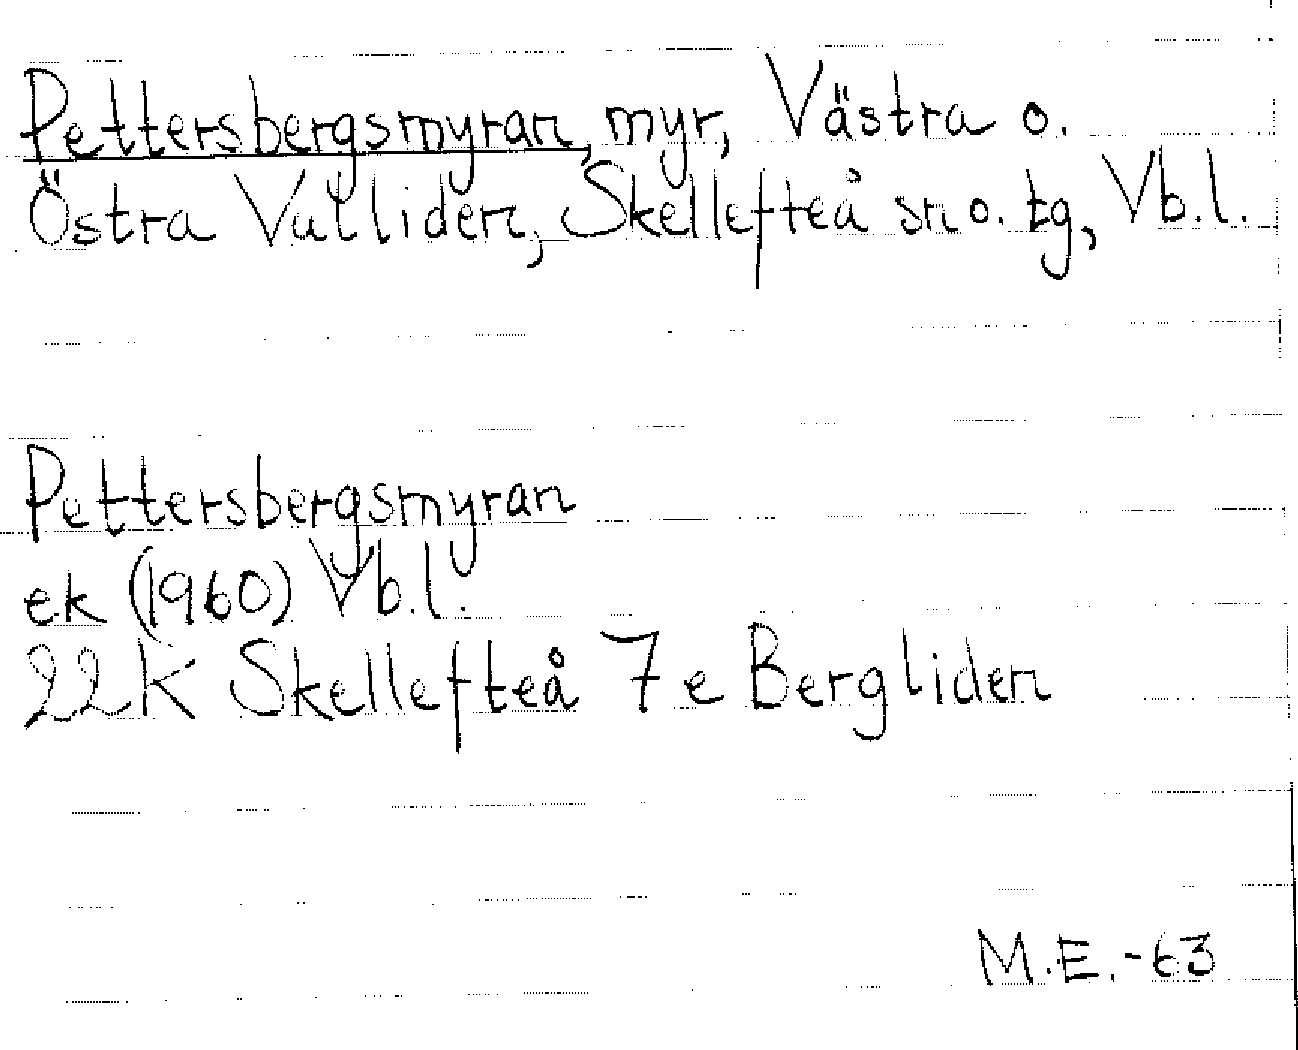 Pettersbergsmyran, myr, Västra o.
Östra Valliden, Skellefteå sn o. tg, Vb.l.
Pettersbergsmyran
ek (1960) Vb.l.
22K Skellefteå 7e Bergliden
M.E.-63